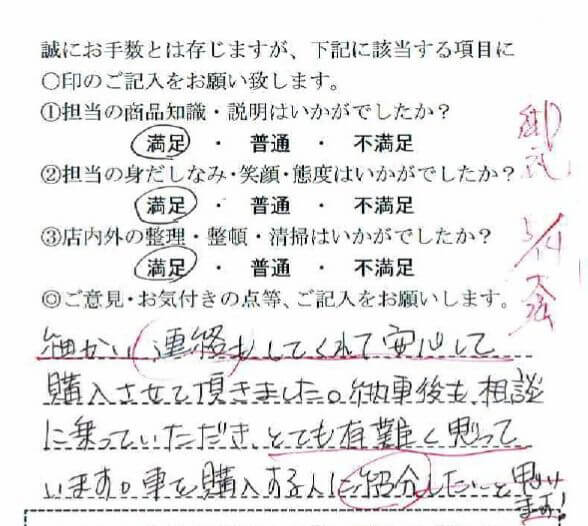 誠にお手数とは存じますが、下記に該当する項目に
○印のご記入をお願い致します。
①担当の商品知識・説明はいかがでしたか？
満足 ・ 普通 ・ 不満足
②担当の身だしなみ・笑顔・態度はいかがでしたか？
満足 ・ 普通 ・ 不満足
③店内外の整理・整頓・清掃はいかがでしたか？
満足 ・ 普通 ・ 不満足
◎ご意見・お気付きの点等、ご記入をお願いします。
細かい連絡もしてくれて安心して
購入させて頂きました。納車後も相談
に乗っていただき、とても有難く思って
います。車を購入する人に紹介したいと思い
ます！
御礼
5/14